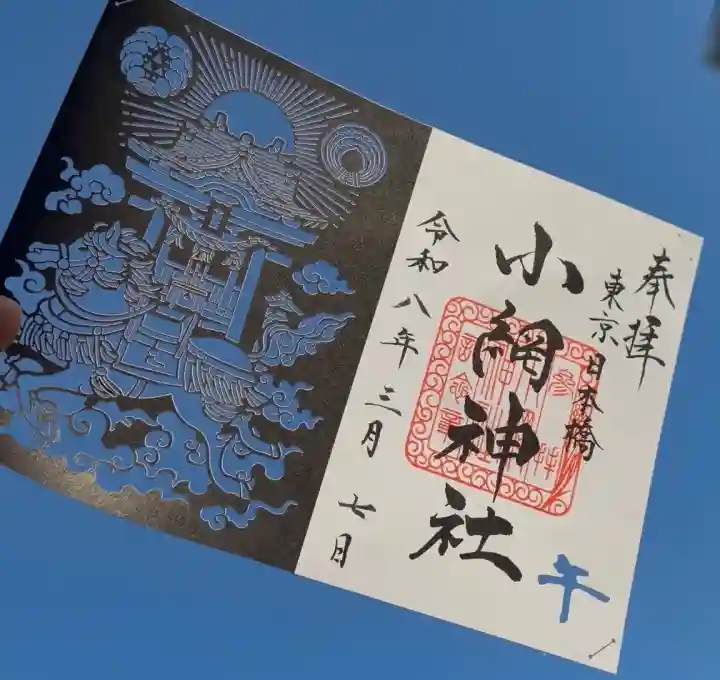 奉拝
東京日本橋
小網神社
令和八年三月七日
午